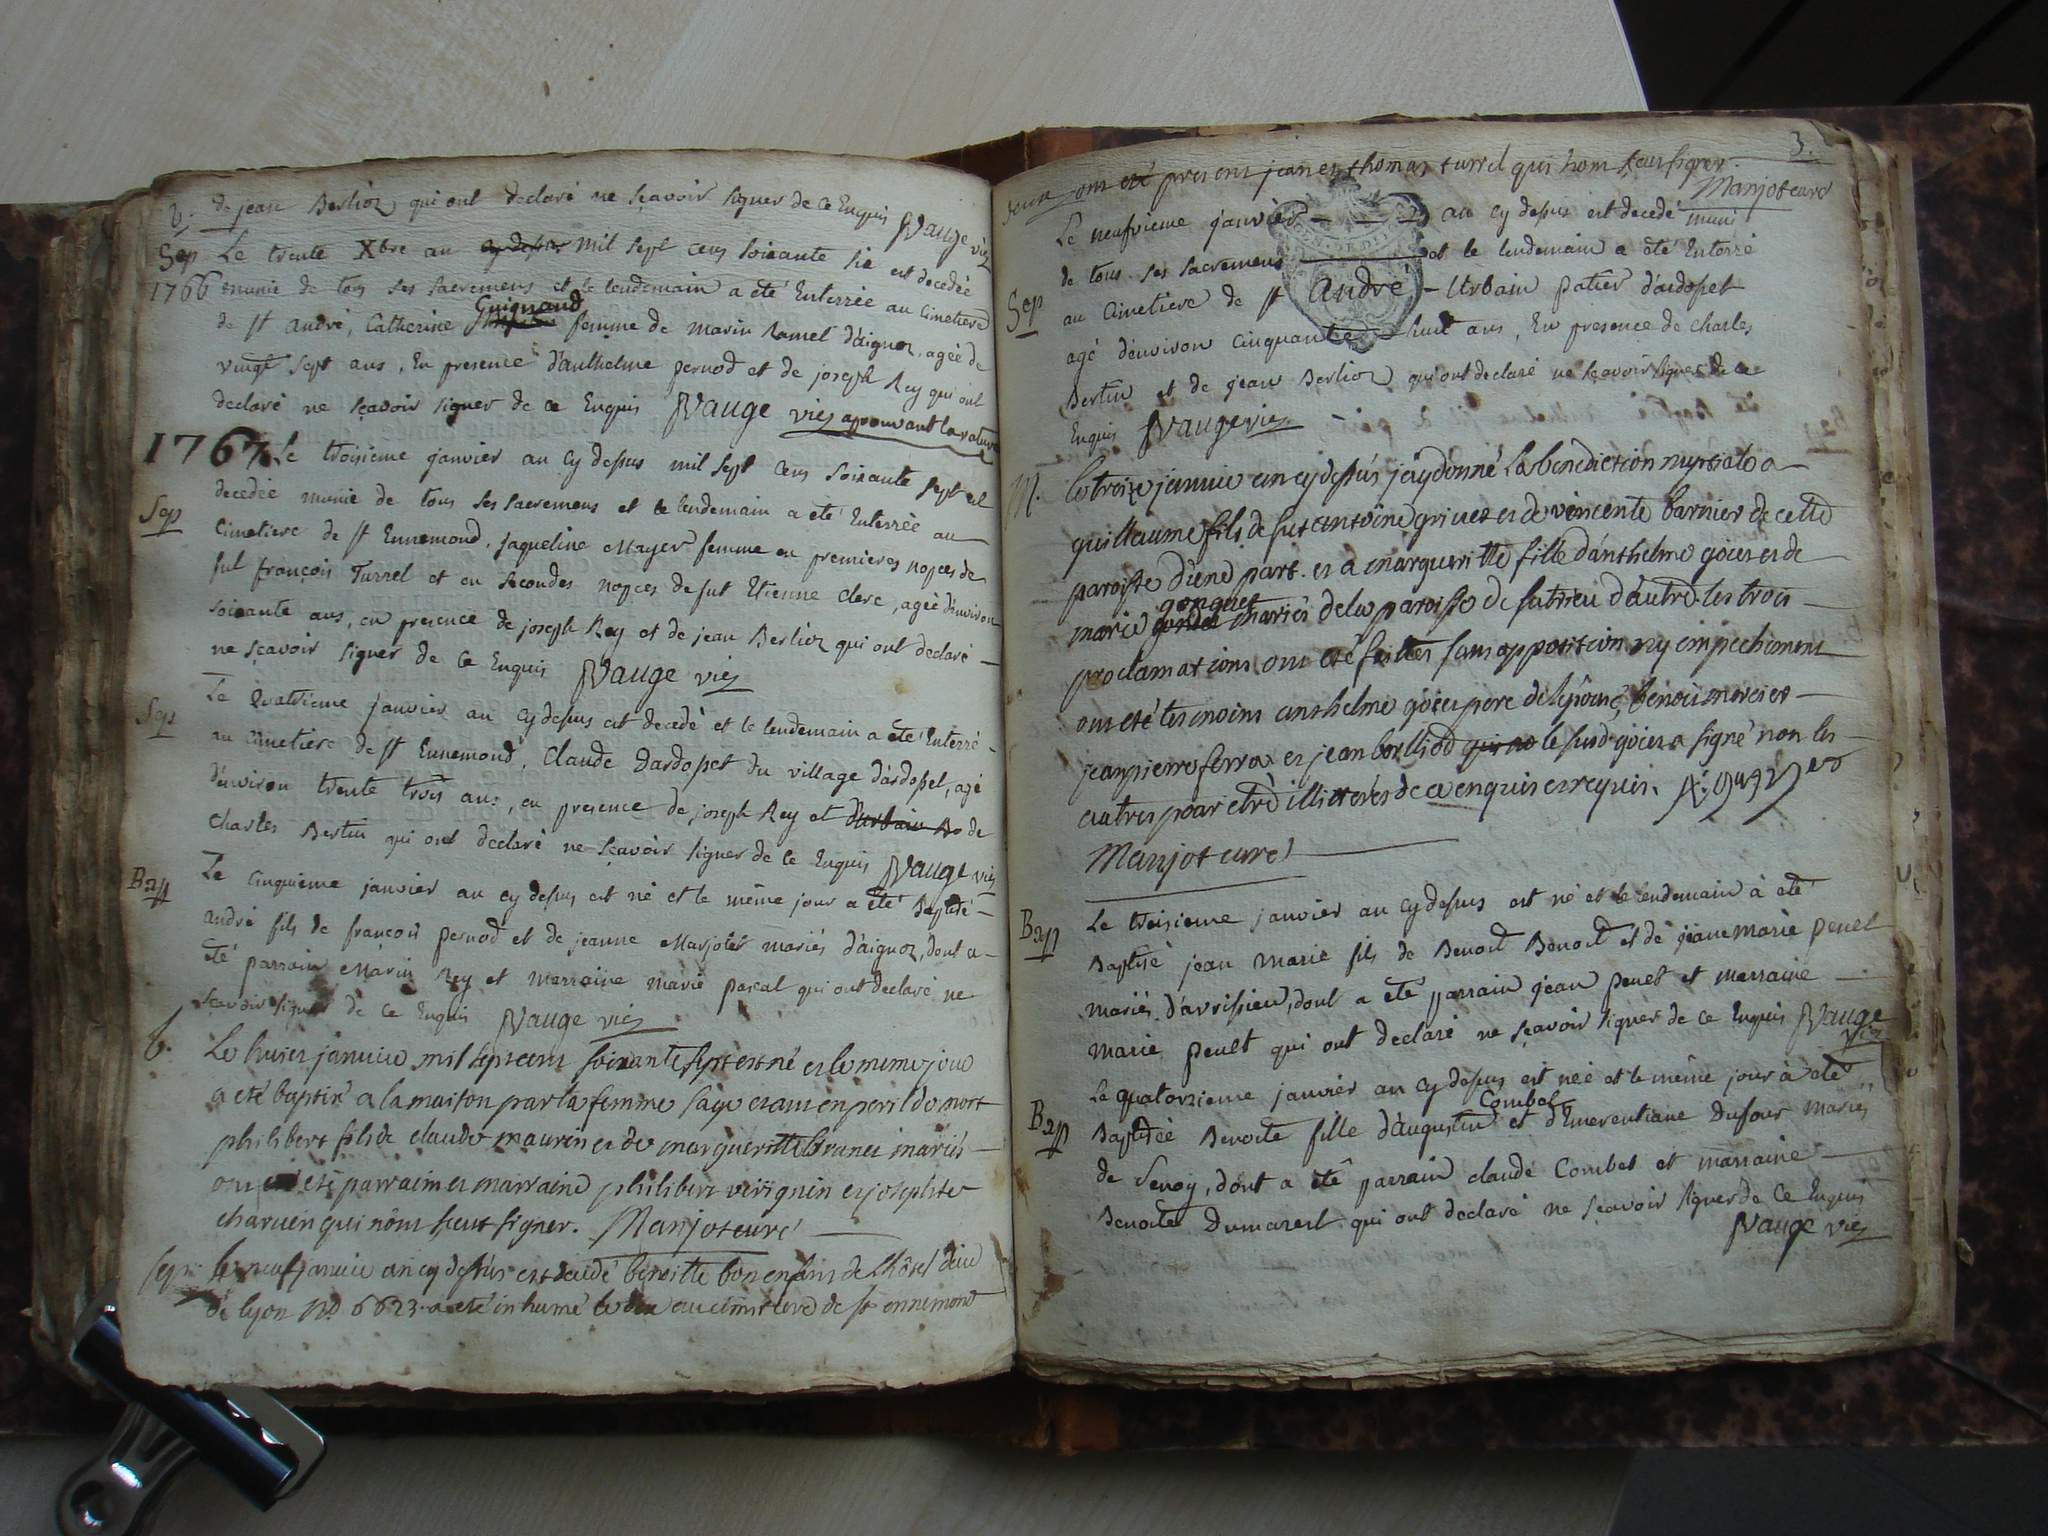 v. de jean Berlioz qui ont declaré ne sçavoir signer de ce Enquis JVauge vic
Sep Le trente Xbre an cy dessus mil sept cens soixante six est decedée
1766 munie de tous ses sacremens et le lendemain a été Enterrée au cimetiere
Guignand
de st André, Catherine femme de marin Ramel d'aignoz, agée de
vingt sept ans, En presence d'anthelme pernod et de joseph Rey qui ont
declaré ne sçavoir signer de ce Enquis JVauge vic approuvant la rature
1767 Le troisieme janvier an cy dessus mil sept cens soixante sept est
decedée munie de tous ses sacremens et le lendemain a été Enterrée au
Sep
cimetiere de st Ennemond, jaqueline Mayer femme en premieres nopces de
fut françois Turrel et en secondes nopces de fut Etienne Clerc, agée d'environ
soixante ans, en presence de joseph Rey et de jean Berlioz qui ont declaré
ne sçavoir signer de ce Enquis JVauge vic
Sep Le quatrieme janvier an cy dessus est decedé et le lendemain a été Enterré
au cimetiere de st Ennemond, Claude Dardopet du village d'ardopet, agé
d'environ trente trois ans, en presence de joseph Rey et d'urbain de
Charles Bertin qui ont declaré ne sçavoir signer de ce Enquis JVauge vic
Bap Le cinquieme janvier an cy dessus est né et le même jour a été Baptisé
andré fils de francois pernod et de jeanne Marjolet mariés d'aignoz, dont a
été parrain Marin Rey et marraine marie pascal qui ont declaré ne
sçavoir signer de ce Enquis JVauge vic
b. Le huict janvier mil sept cent soixante sept est né et le meme jour
a eté baptisé a la maison par la femme sage etant en peril de mort
philibert fils de claude maurin et de margueritte brunet mariés
ont eté parrain et marraine philibert virignin et josephte
charvin qui nōnt sceut signer. Manjot curé
sep. le neuf janvier an cy dessus est decedé benoitte bon enfant de l'hôtel dieu
de lyon no 6623 a eté inhumé au cimetiere de st ennemont
3.
ont eté present jean et thomas turrel qui nont sceu signer.
Manjot curé
Le neufvieme janvier an cy dessus est decedé muni
de tous ses sacremens et le lendemain a été Enterré
Sep au cimetiere de st André Urbain patier d'ardopet
agé d'environ cinquante huit ans, En presence de Charles
Bertin et de jean Berlioz qui ont declaré ne sçavoir signer de ce
Enquis JVauge vic
M. le treize janvier an cy dessus j'ay donné la benediction nuptiale a
guillaume fils de fut antoine grivet et de vincente barnier de cette
paroisse d'une part et a margueritte fille d'anthelme goiet et de
gonguet
marie mariés de la paroisse de sutrieu d'autre les trois
proclamations ont eté faittes sans opposition ny empechement
ont eté temoins anthelme goiet pere de l'epouse, benoit mercier
jean pierre ferraz et jean borlliod le susd. goiet a signé non les
autres pour etre illiterés de ce enquis et requis.
Manjot curé
Bap Le treisieme janvier an cy dessus est né et le lendemain à été
Baptisé jean marie fils de Benoit Benoit et de jeane marie penet
mariés d'avrissieu, dont a été parrain jean penet et marraine
marie penet qui ont declaré ne sçavoir signer de ce Enquis JVauge
vic
Le quatorzieme janvier an cy dessus est née et le même jour à été
Combet
Bap Baptisée Benoite fille d'augustin et d'Emerentiane Dufour mariés
de Senoy, dont a été parrain claude Combet et marraine
Benoite Dumarest qui ont declaré ne sçavoir signer de ce Enquis
JVauge vic